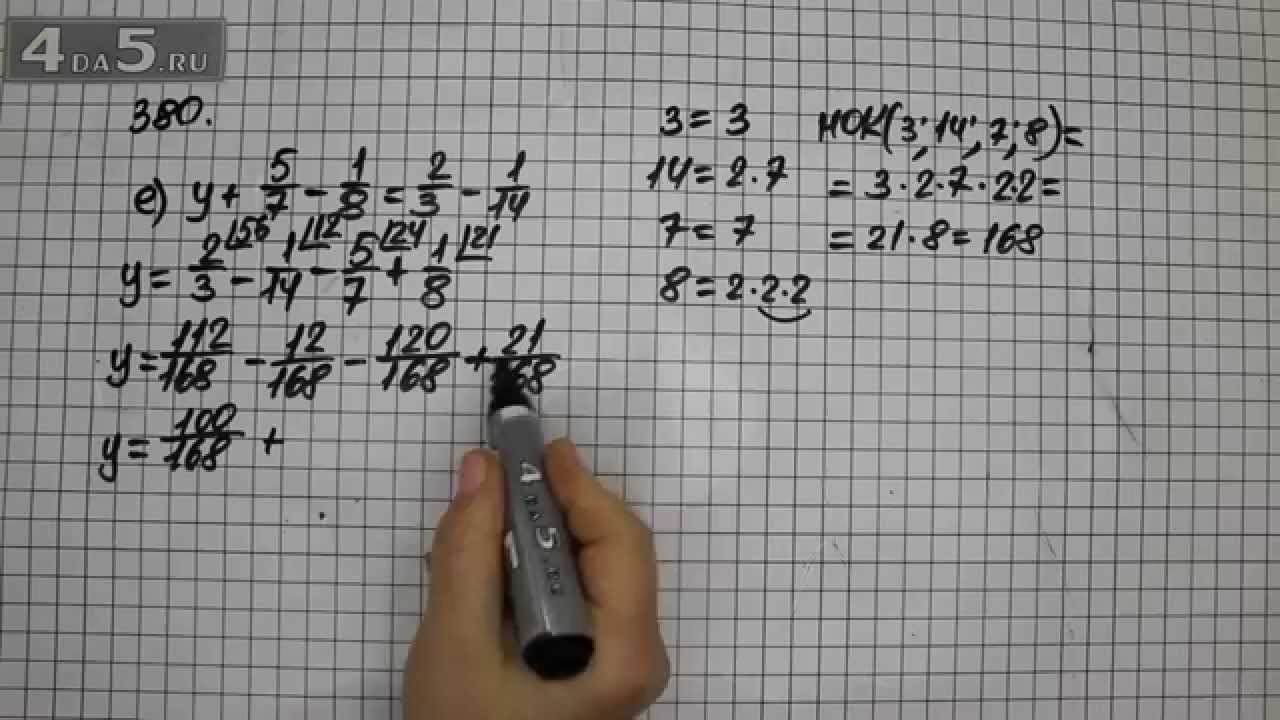 4DA5.RU
380.
е) y + 5/7 - 1/8 = 2/3 - 1/14
y = 2/3 ⌊56 - 1/14 ⌊12 - 5/7 ⌊24 + 1/8 ⌊21
y = 112/168 - 12/168 - 120/168 + 21/168
y = 100/168 +
3 = 3
14 = 2·7
7 = 7
8 = 2·2·2
НОК(3; 14; 7; 8) =
= 3·2·7·2·2 =
= 21·8 = 168
4DA5.RU